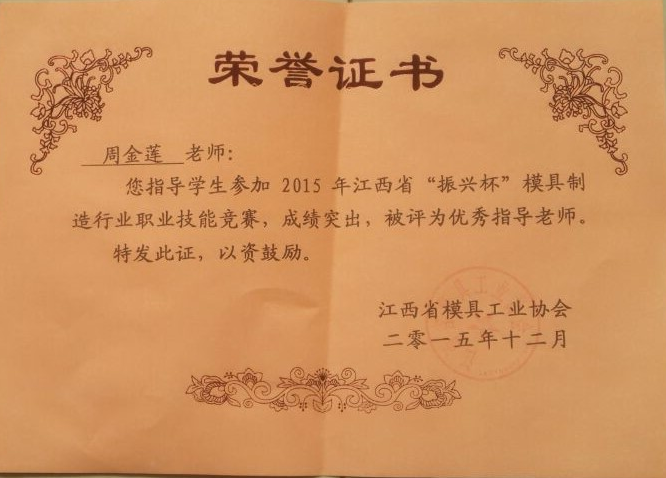 荣誉证书
周金莲 老师：
您指导学生参加 2015 年江西省“振兴杯”模具制
造行业职业技能竞赛，成绩突出，被评为优秀指导老师。
特发此证，以资鼓励。
江西省模具工业协会
二零一五年十二月